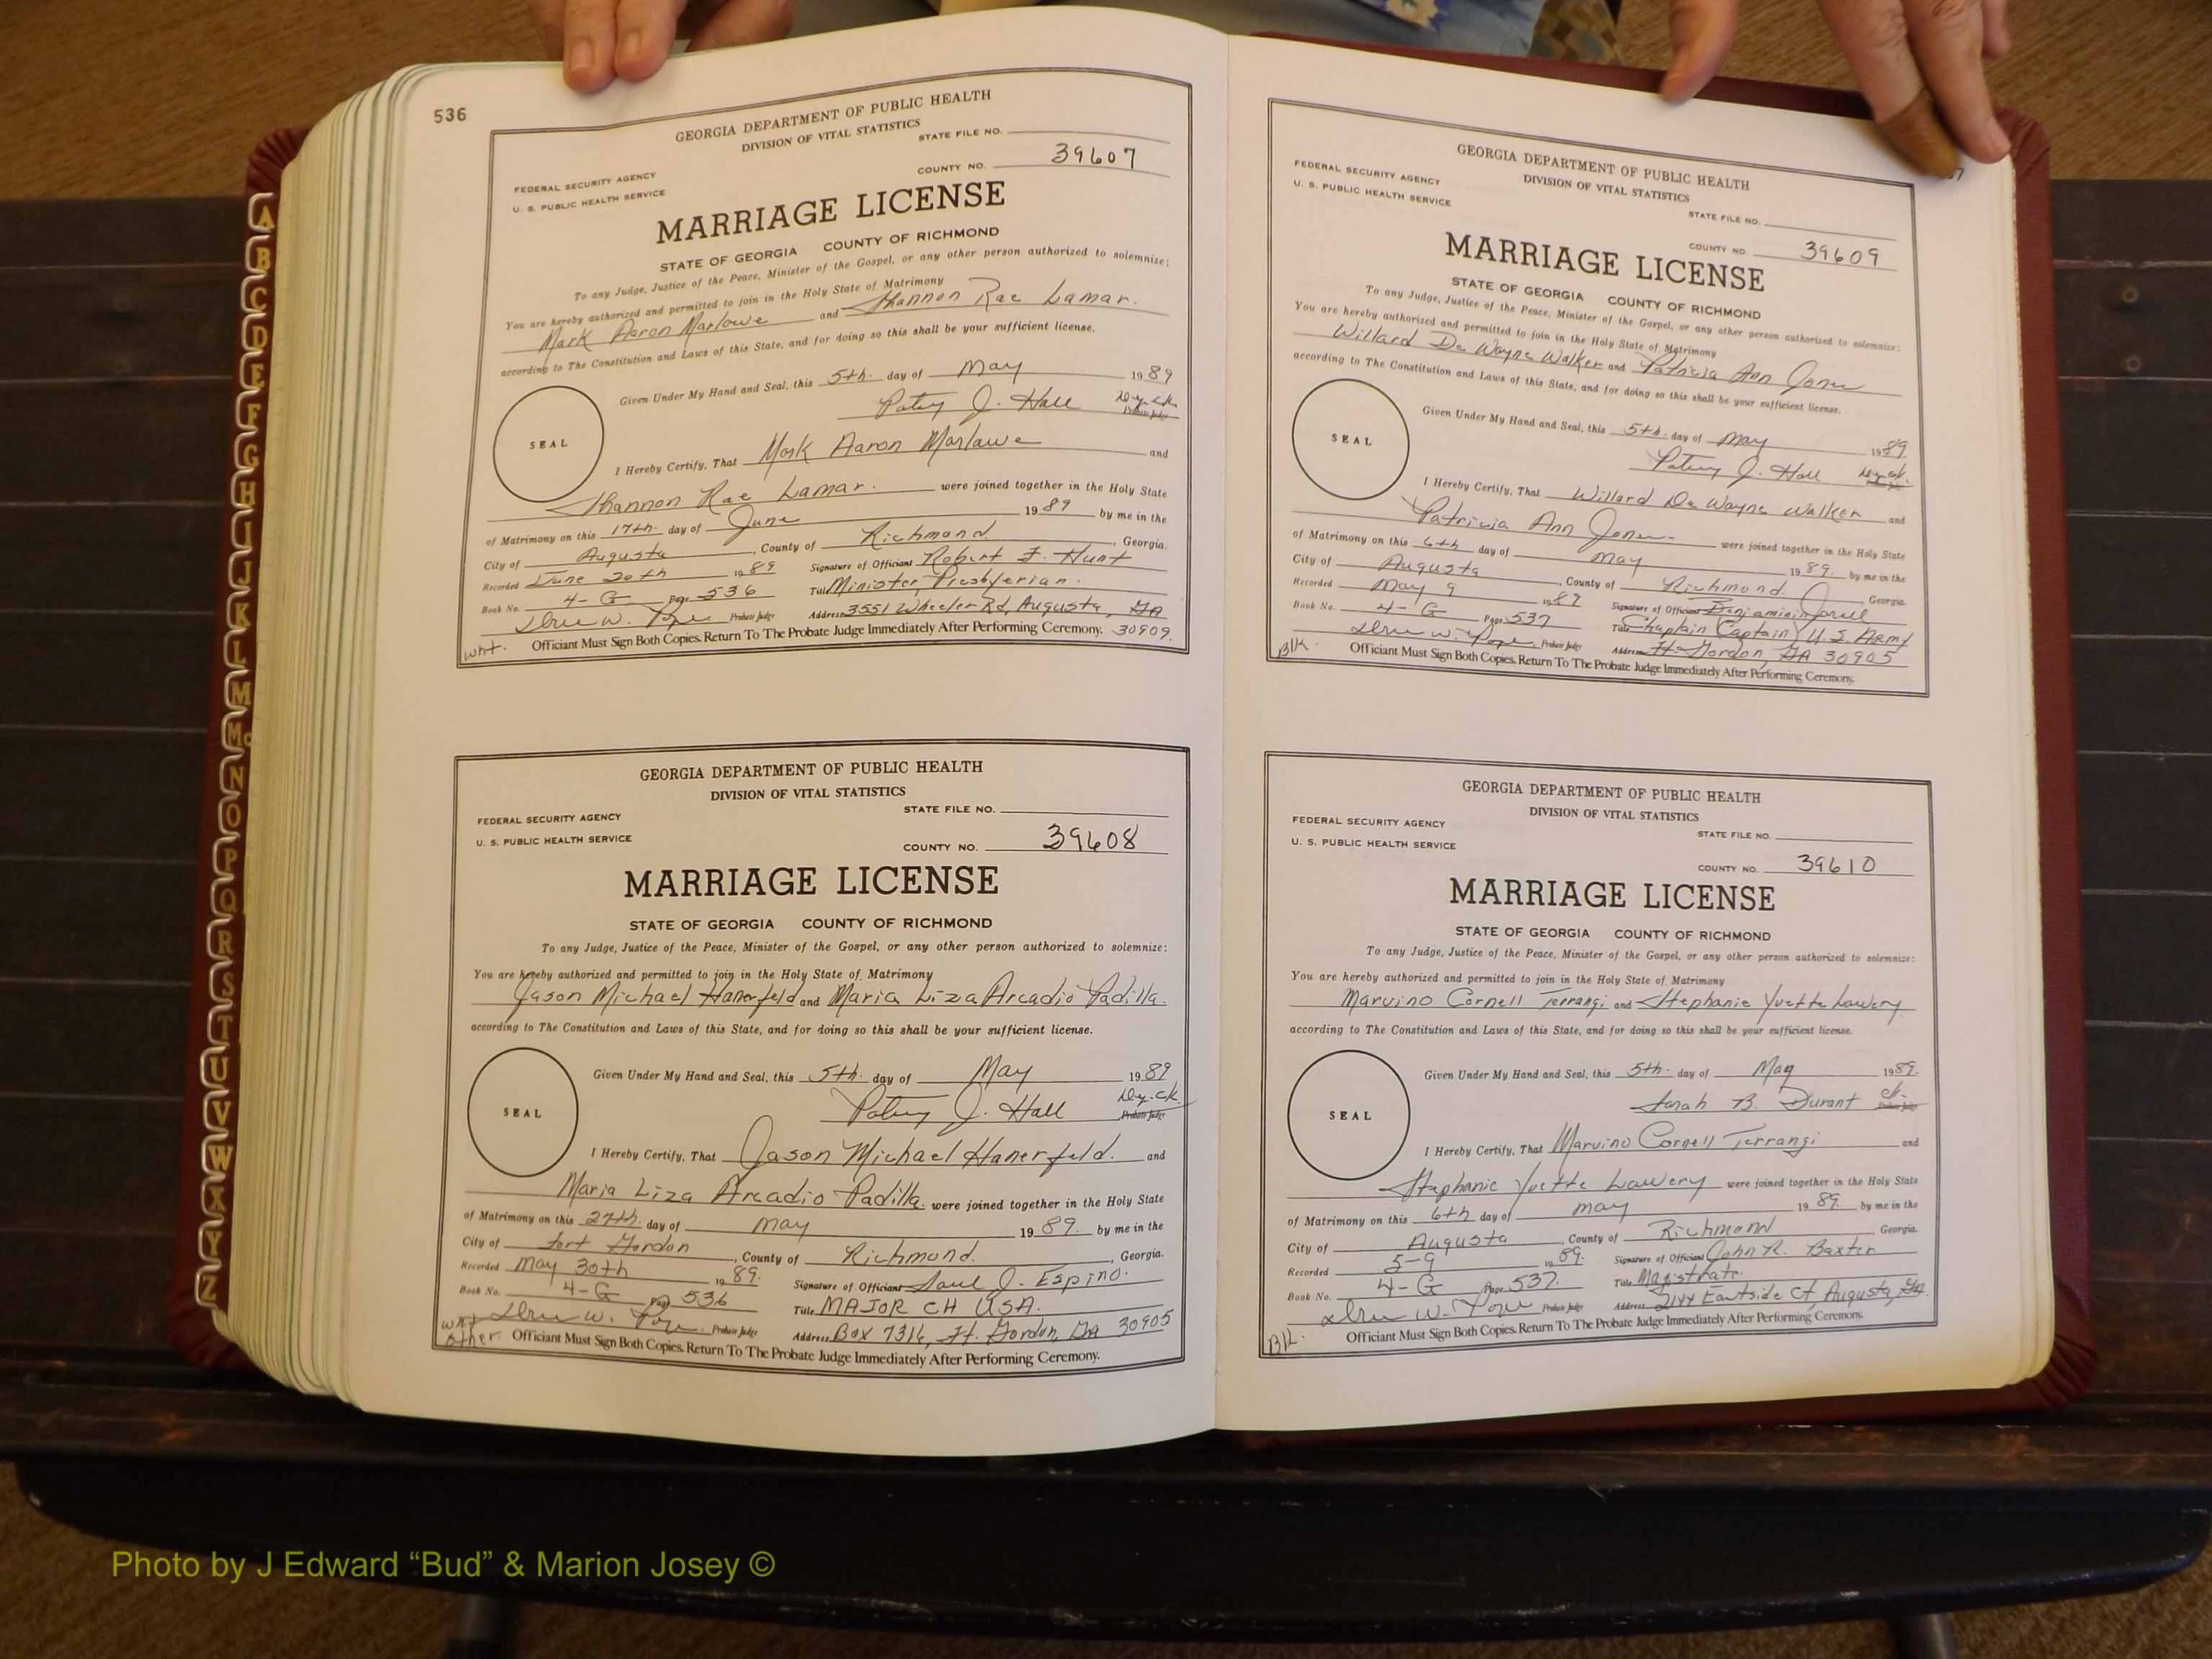 536
GEORGIA DEPARTMENT OF PUBLIC HEALTH
DIVISION OF VITAL STATISTICS
STATE FILE NO.
FEDERAL SECURITY AGENCY
COUNTY NO. 39607
U. S. PUBLIC HEALTH SERVICE
MARRIAGE LICENSE
STATE OF GEORGIA COUNTY OF RICHMOND
To any Judge, Justice of the Peace, Minister of the Gospel, or any other person authorized to solemnize:
You are hereby authorized and permitted to join in the Holy State of Matrimony
Mark Aaron Marlowe and Shannon Rae Lamar.
according to The Constitution and Laws of this State, and for doing so this shall be your sufficient license.
Given Under My Hand and Seal, this 5th. day of May 1989
Patsy J. Hall Dy. ck.
Probate Judge
SEAL
I Hereby Certify, That Mark Aaron Marlowe and
Shannon Rae Lamar. were joined together in the Holy State
of Matrimony on this 17th. day of June 1989 by me in the
City of Augusta, County of Richmond, Georgia.
Recorded June 20th 1989 Signature of Officiant Robert F. Hunt
Book No. 4-G Page 536 Title Minister, Presbyterian.
Probate Judge Address 3551 Wheeler Rd, Augusta, GA
wht. Officiant Must Sign Both Copies. Return To The Probate Judge Immediately After Performing Ceremony. 30909.
GEORGIA DEPARTMENT OF PUBLIC HEALTH
DIVISION OF VITAL STATISTICS
STATE FILE NO.
FEDERAL SECURITY AGENCY
U. S. PUBLIC HEALTH SERVICE
COUNTY NO. 39608
MARRIAGE LICENSE
STATE OF GEORGIA COUNTY OF RICHMOND
To any Judge, Justice of the Peace, Minister of the Gospel, or any other person authorized to solemnize:
You are hereby authorized and permitted to join in the Holy State of Matrimony
Jason Michael Hanerfeld and Maria Liza Arcadio Padilla.
according to The Constitution and Laws of this State, and for doing so this shall be your sufficient license.
Given Under My Hand and Seal, this 5th. day of May 1989
Patsy J. Hall Dy. ck.
Probate Judge
SEAL
I Hereby Certify, That Jason Michael Hanerfeld. and
Maria Liza Arcadio Padilla. were joined together in the Holy State
of Matrimony on this 27th. day of May 1989. by me in the
City of Fort Gordon, County of Richmond., Georgia.
Recorded May 30th 1989. Signature of Officiant Saul J. Espino.
Book No. 4-G Page 536 Title MAJOR CH USA.
Probate Judge Address Box 7316, Ft. Gordon, GA 30905
wht
other Officiant Must Sign Both Copies. Return To The Probate Judge Immediately After Performing Ceremony.
7
GEORGIA DEPARTMENT OF PUBLIC HEALTH
DIVISION OF VITAL STATISTICS
FEDERAL SECURITY AGENCY
U. S. PUBLIC HEALTH SERVICE
STATE FILE NO.
COUNTY NO. 39609
MARRIAGE LICENSE
STATE OF GEORGIA COUNTY OF RICHMOND
To any Judge, Justice of the Peace, Minister of the Gospel, or any other person authorized to solemnize:
You are hereby authorized and permitted to join in the Holy State of Matrimony
Willard De Wayne Walker and Patricia Ann Jones
according to The Constitution and Laws of this State, and for doing so this shall be your sufficient license.
Given Under My Hand and Seal, this 5th. day of May 1989
Patsy J. Hall Dy. ck.
SEAL
I Hereby Certify, That Willard De Wayne Walker and
Patricia Ann Jones were joined together in the Holy State
of Matrimony on this 6th day of May 1989. by me in the
City of Augusta, County of Richmond, Georgia.
Recorded May 9 1989 Signature of Officiant
Book No. 4-G Page 537 Title Chaplain (Captain) U.S. ARMY
Probate Judge Address Ft Gordon, GA 30905
Blk. Officiant Must Sign Both Copies. Return To The Probate Judge Immediately After Performing Ceremony.
GEORGIA DEPARTMENT OF PUBLIC HEALTH
DIVISION OF VITAL STATISTICS
FEDERAL SECURITY AGENCY
STATE FILE NO.
U. S. PUBLIC HEALTH SERVICE
COUNTY NO. 39610
MARRIAGE LICENSE
STATE OF GEORGIA COUNTY OF RICHMOND
To any Judge, Justice of the Peace, Minister of the Gospel, or any other person authorized to solemnize:
You are hereby authorized and permitted to join in the Holy State of Matrimony
Marvino Cornell Terrangi and Stephanie Yvette Lowery
according to The Constitution and Laws of this State, and for doing so this shall be your sufficient license.
Given Under My Hand and Seal, this 5th. day of May 1989.
Sarah B. Durant ck.
SEAL
I Hereby Certify, That Marvino Cornell Terrangi and
Stephanie Yvette Lowery were joined together in the Holy State
of Matrimony on this 6th day of May 1989. by me in the
City of Augusta, County of Richmond, Georgia.
Recorded 5-9 1989. Signature of Officiant John R. Baxter
Book No. 4-G Page 537. Title Magistrate.
Probate Judge Address 2144 Eastside Ct, Augusta, GA.
Blk. Officiant Must Sign Both Copies. Return To The Probate Judge Immediately After Performing Ceremony.
A
B
C
D
E
F
G
H
I
J
K
L
M
Mc
N
O
P
Q
R
S
T
U
V
W
X
Y
Z
Photo by J Edward “Bud” & Marion Josey ©